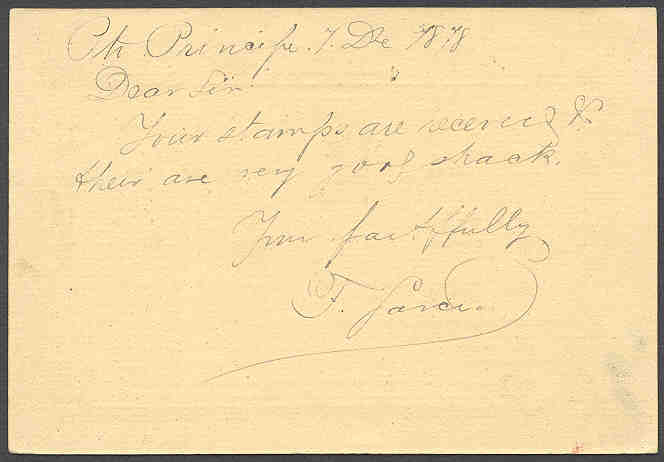 Pto Principe, 7. De 1878
Dear Sir
Your stamps are received &
their are very good
Your faitffully
F.